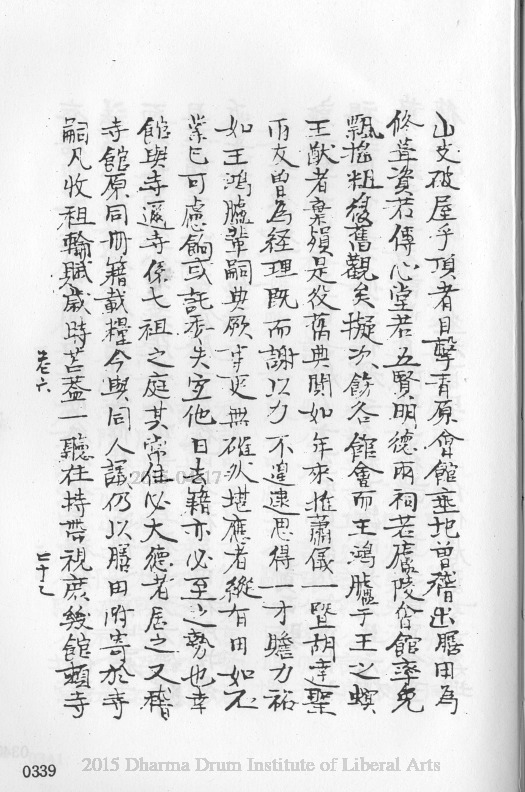 山支破屋乎頂者目擊青原會館垂地曾藉出膳田為
修葺資若傳心堂若五賢明德兩祠若廬陵會館率免
飄搖粗復舊觀矣擬次餙各館會而王鴻臚于王之螟
王猷者棄殞是役舊典閴如年來推蕭儀一暨胡達聖
兩友曽為経理既而謝以力不遑逮思得一才贍力裕
如王鴻臚輩嗣典厥事更無確然堪應者縱有田如不
業已可慮餉或託委失宜他日去籍亦必至之勢也幸
館與寺邇寺係七祖之庭其常住必大德者居之又稽
寺館原同冊籍載糧今與同人議仍以膳田附寄於寺
嗣凡收祖輸賦歲時苫葢一聽住持帶視庶幾館頼寺
卷六
七十七
0339
2015 Dharma Drum Institute of Liberal Arts